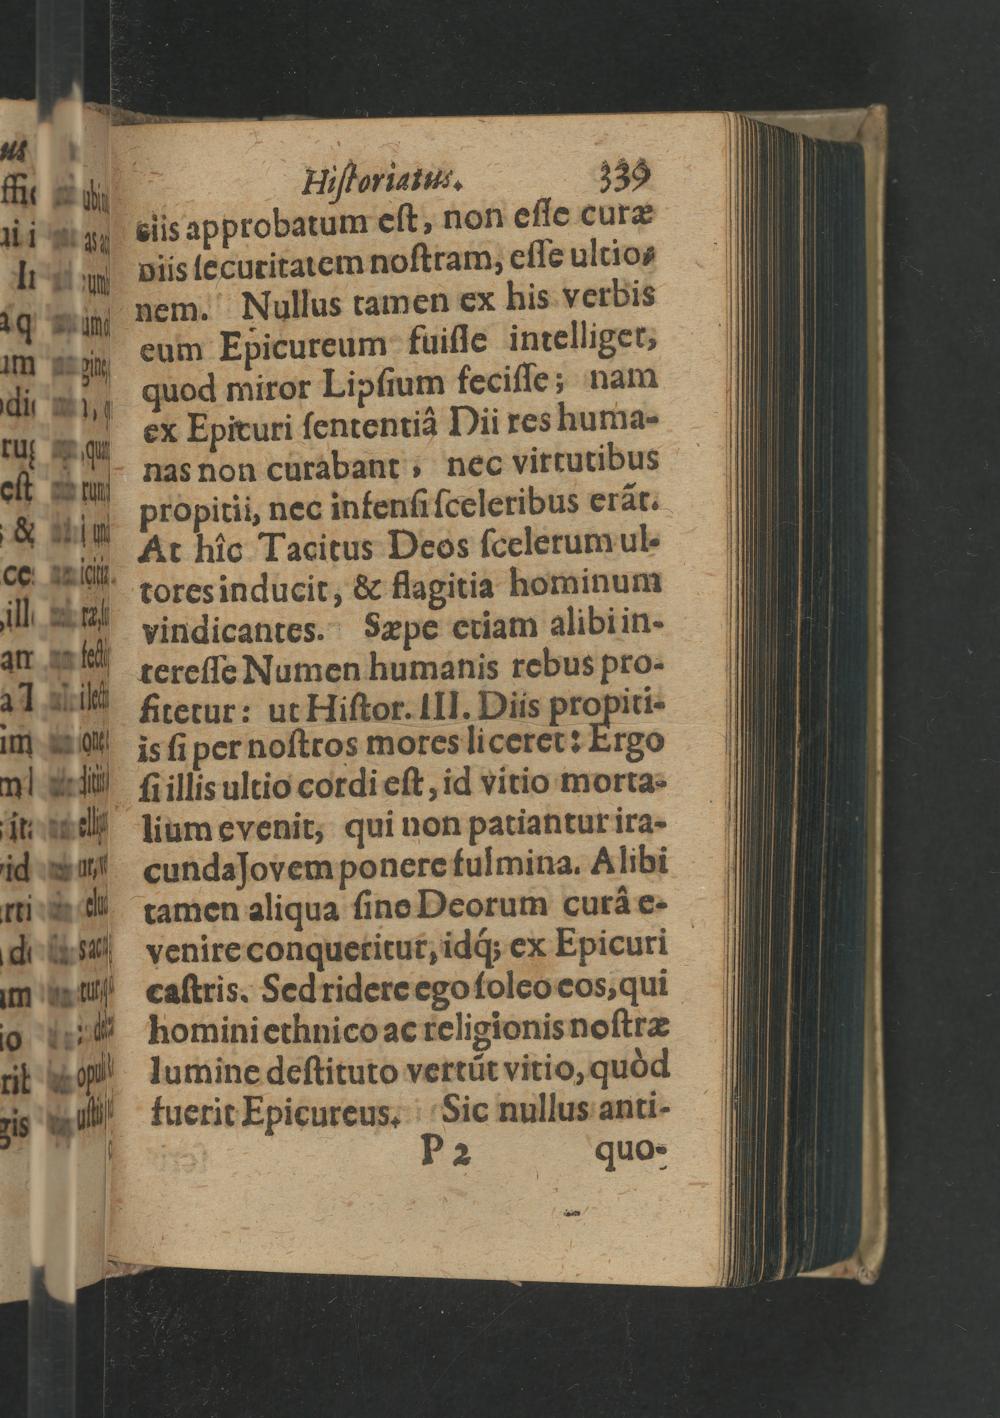 Hiſtoriatus. 339
ciis approbatum eſt, non eſſe curæ
Diis ſecuritatem noſtram, eſſe ultio-
nem. Nullus tamen ex his verbis
eum Epicureum fuiſſe intelliget,
quod miror Lipſium feciſſe; nam
ex Epicuri ſententiâ Dii res huma-
nas non curabant, nec virtutibus
propitii, nec infenſi ſceleribus erãt.
At hîc Tacitus Deos ſcelerum ul-
tores inducit, & flagitia hominum
vindicantes. Sæpe etiam alibi in-
tereſſe Numen humanis rebus pro-
fitetur: ut Hiſtor. III. Diis propiti-
is ſi per noſtros mores liceret: Ergo
ſi illis ultio cordi eſt, id vitio morta-
lium evenit, qui non patiantur ira-
cunda Jovem ponere fulmina. Alibi
tamen aliqua ſine Deorum curâ e-
venire conqueritur, idq́; ex Epicuri
caſtris. Sed ridere ego ſoleo eos, qui
homini ethnico ac religionis noſtræ
lumine deſtituto vertũt vitio, quòd
fuerit Epicureus. Sic nullus anti-
P 2 quo-